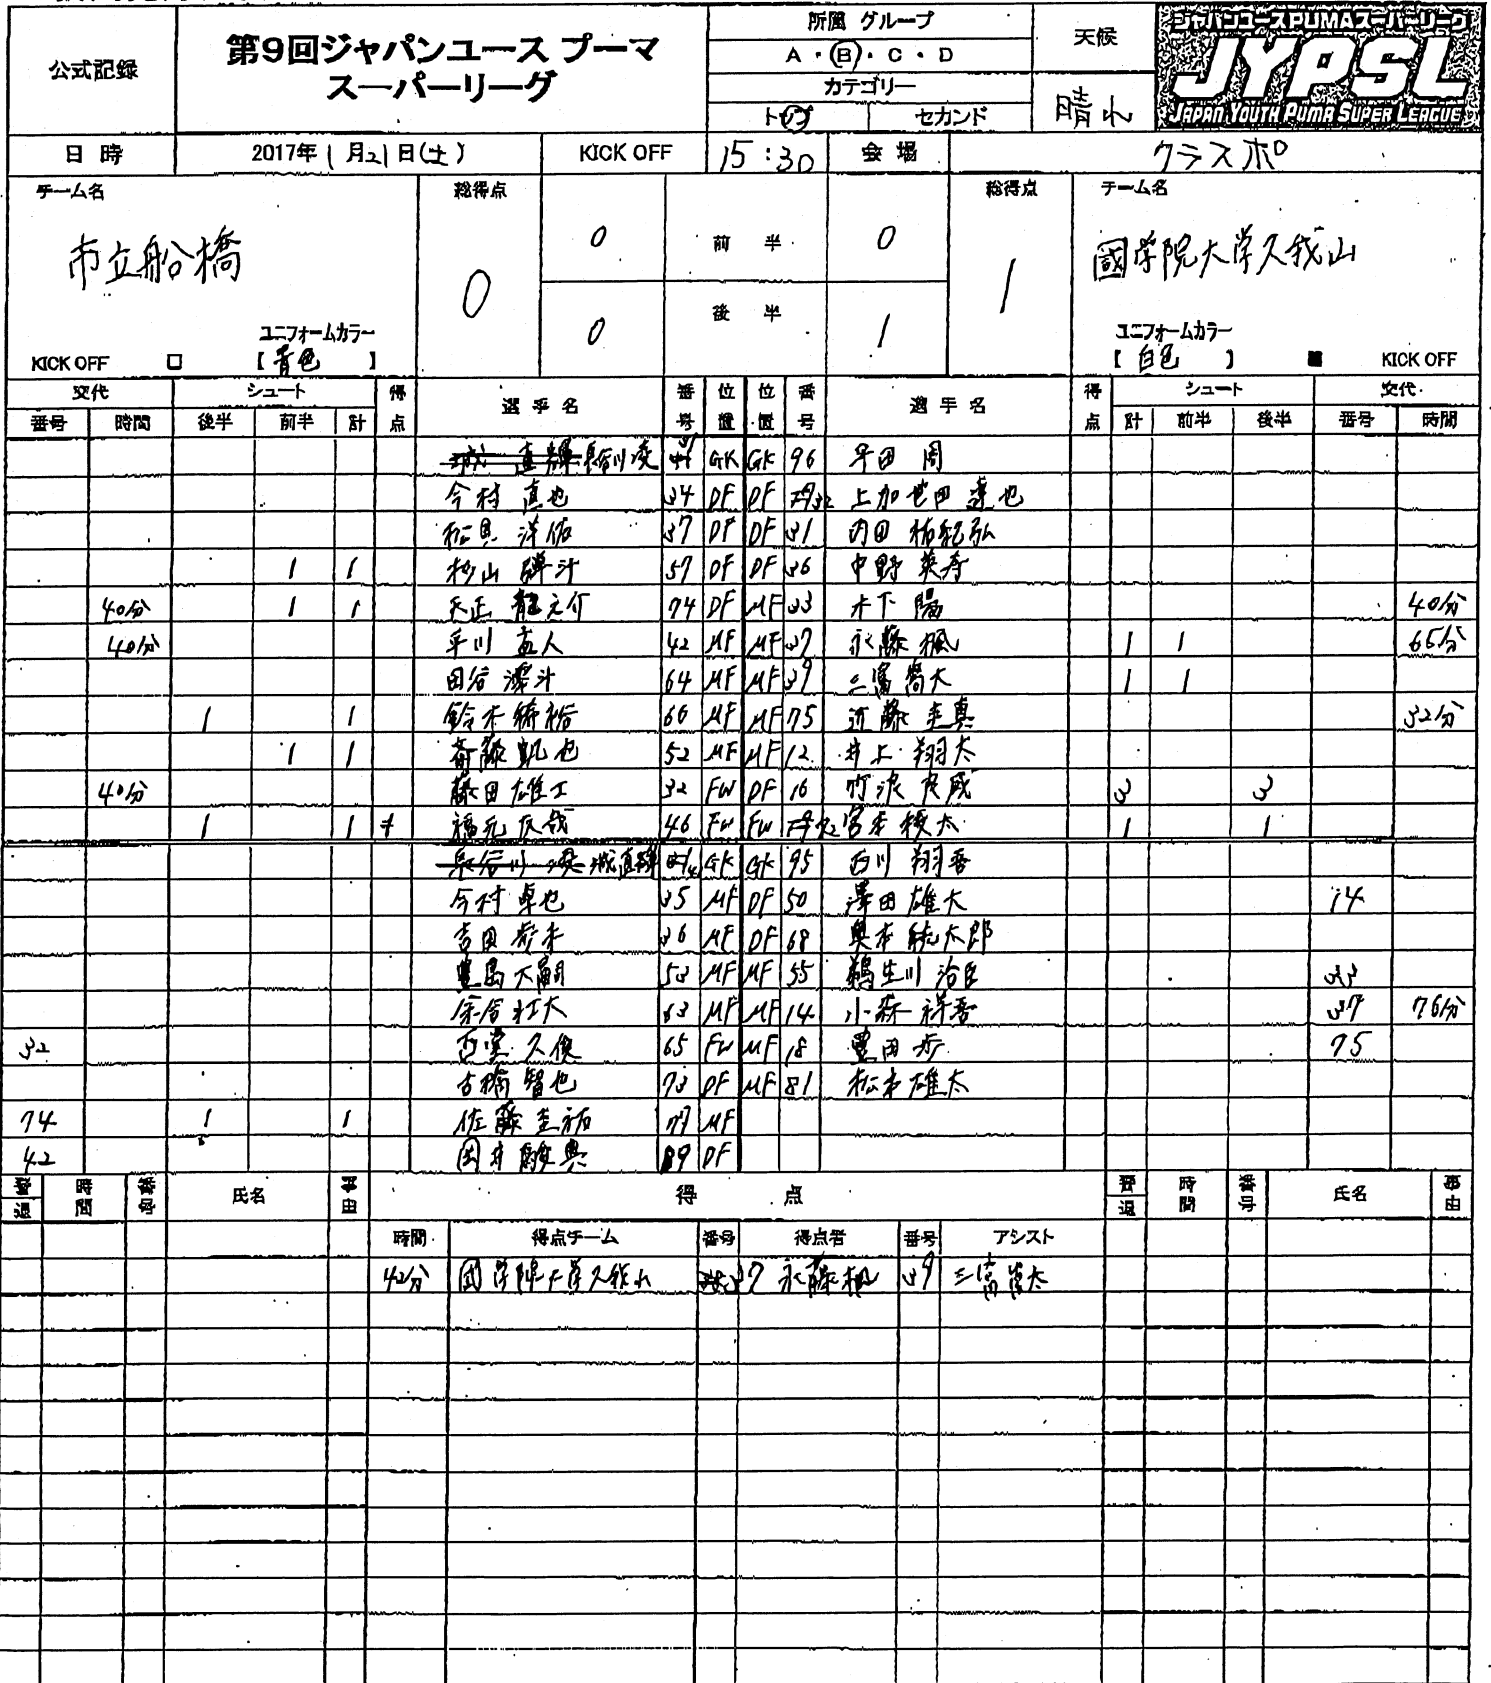 公式記録
第9回ジャパンユース プーマ
スーパーリーグ
所属 グループ
A・B・C・D
カテゴリー
トップ セカンド
天候
晴れ
ジャパンユースPUMAスーパーリーグ
JYPSL
JAPAN YOUTH PUMA SUPER LEAGUE
日時 2017年1月21日(土) KICK OFF 15:30 会場 クラスポ
チーム名 総得点 総得点 チーム名
市立船橋 0 0 前半 0 1 國学院大学久我山
0 後半 1
ユニフォームカラー ユニフォームカラー
KICK OFF □ 【青色】 【白色】 ■ KICK OFF
交代 シュート 得点 選手名 番号 位置 位置 番号 選手名 得点 シュート 交代
番号 時間 後半 前半 計 計 前半 後半 番号 時間
GK GK 96 平田 周
今村 直也 34 DF DF 32 上加世田 達也
松具 洋佑 37 DF DF 31 内田 祐紀弘
1 1 杉山 弾斗 57 DF DF 36 中野 英寿
40分 1 1 天正 龍之介 74 DF MF 33 木下 陽 40分
40分 平川 直人 42 MF MF 37 永藤 楓 1 1 65分
田谷 澪斗 64 MF MF 39 三富 嵩大 1 1
1 1 鈴木 66 MF MF 75 近藤 圭真 32分
1 1 斎藤 凱也 52 MF MF 12 井上 翔太
40分 藤田 雄士 32 FW DF 16 竹浪 良威 3 3
1 1 福元 友哉 46 FW FW 宮本 稜太 1 1
城直輝 GK GK 95 西川 翔吾
今村 卓也 35 MF DF 50 澤田 雄大 14
吉田 歩未 36 MF DF 68 奥本 統太郎
豊島 大嗣 53 MF MF 55 鵜生川 治臣 33
余合 壮太 63 MF MF 14 小森 祥吾 37 76分
32 西堂 久俊 65 FW MF 18 豊田 歩 75
古橋 智也 73 DF MF 81 松本 雄太
74 1 1 佐藤 圭祐 77 MF
42 岡井 駿典 89 DF
警退 時間 番号 氏名 事由 得点 警退 時間 番号 氏名 事由
時間 得点チーム 番号 得点者 番号 アシスト
42分 國学院大学久我山 37 永藤楓 39 三富嵩大